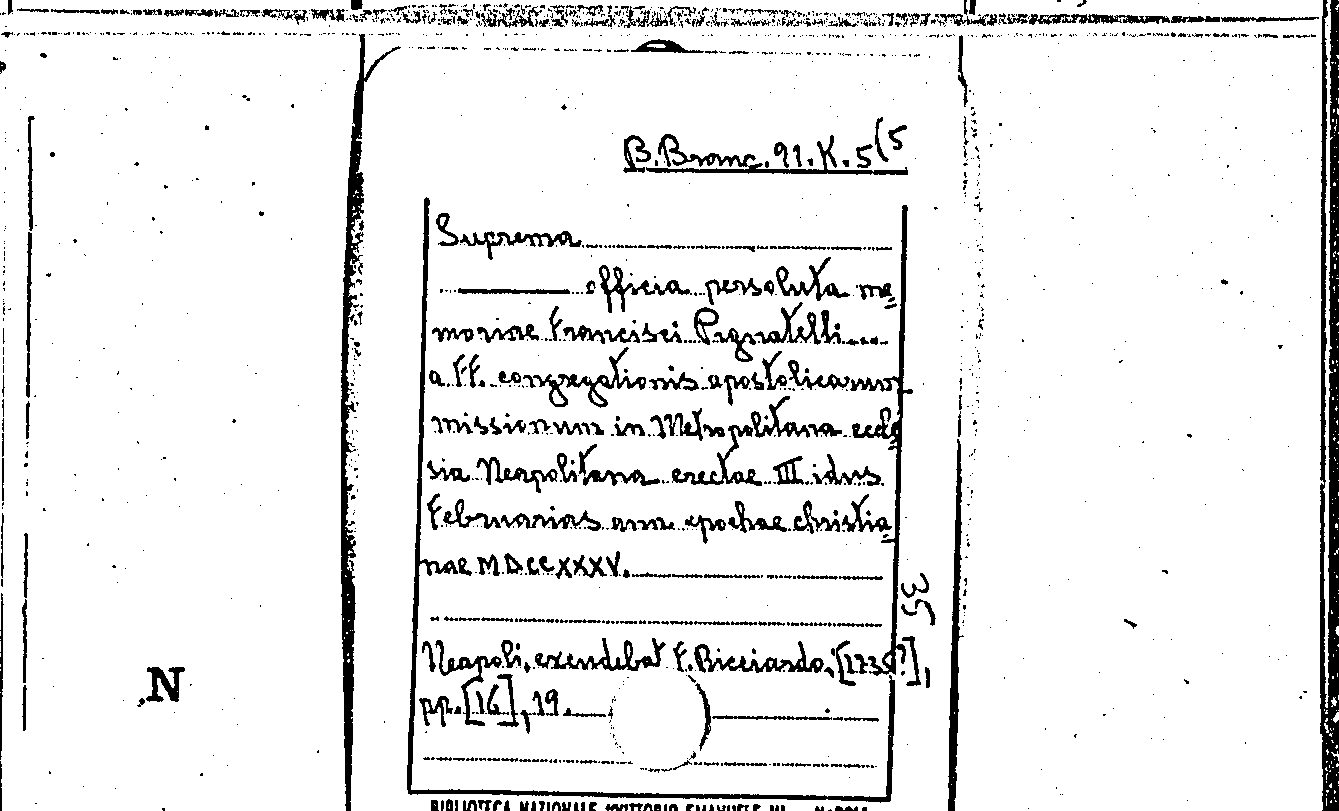 B. Branc. 91. K. 5(5
Suprema
officia persoluta me=
moriae Francisci Pignatelli....
a FF. congregationis apostolicarum
missionum in Metropolitana eccle=
sia Neapolitana erectae III idus
Februarias ann. epochae christia=
nae MDCCXXXV.
35
Neapoli, excudebat F. Ricciardo, [1735?],
pp. [16], 19.
N
BIBLIOTECA NAZIONALE VITTORIO EMANUELE III NAPOLI